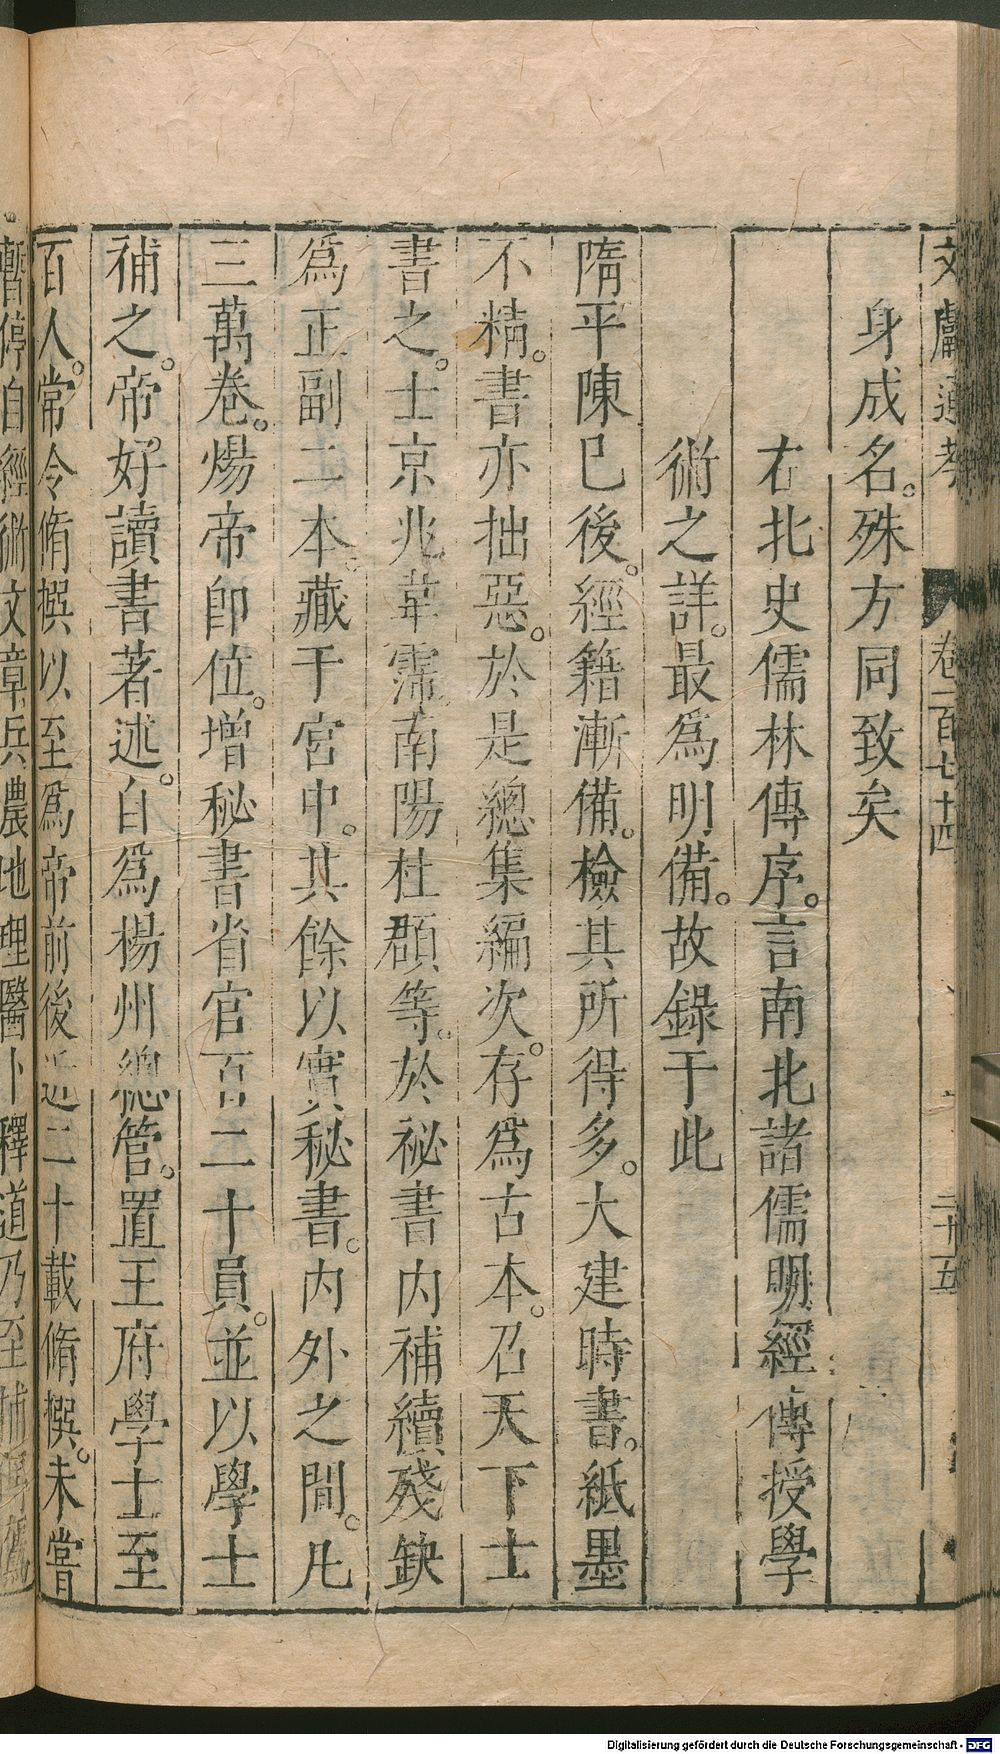 文獻通考 卷一百七十四 二十五
身成名。殊方同致矣
右北史儒林傳序。言南北諸儒明經傳授學
術之詳。最爲明備。故錄于此
隋平陳已後。經籍漸備。檢其所得多。大建時書。紙墨
不精。書亦拙惡。於是總集編次。存爲古本。召天下士
書之。士京兆韋霈。南陽杜頵等。於祕書内補續殘缺
爲正副二本。藏于宮中。其餘以實秘書。内外之間。凡
三萬卷。煬帝卽位。增秘書省官百二十員。並以學士
補之。帝好讀書著述。自爲楊州總管。置王府學士至
百人。常令脩撰以至爲帝前後近二十載脩撰。未嘗
暫停自經術文章兵農地理醫卜釋道乃至捕搏鷹
Digitalisierung gefördert durch die Deutsche Forschungsgemeinschaft - DFG